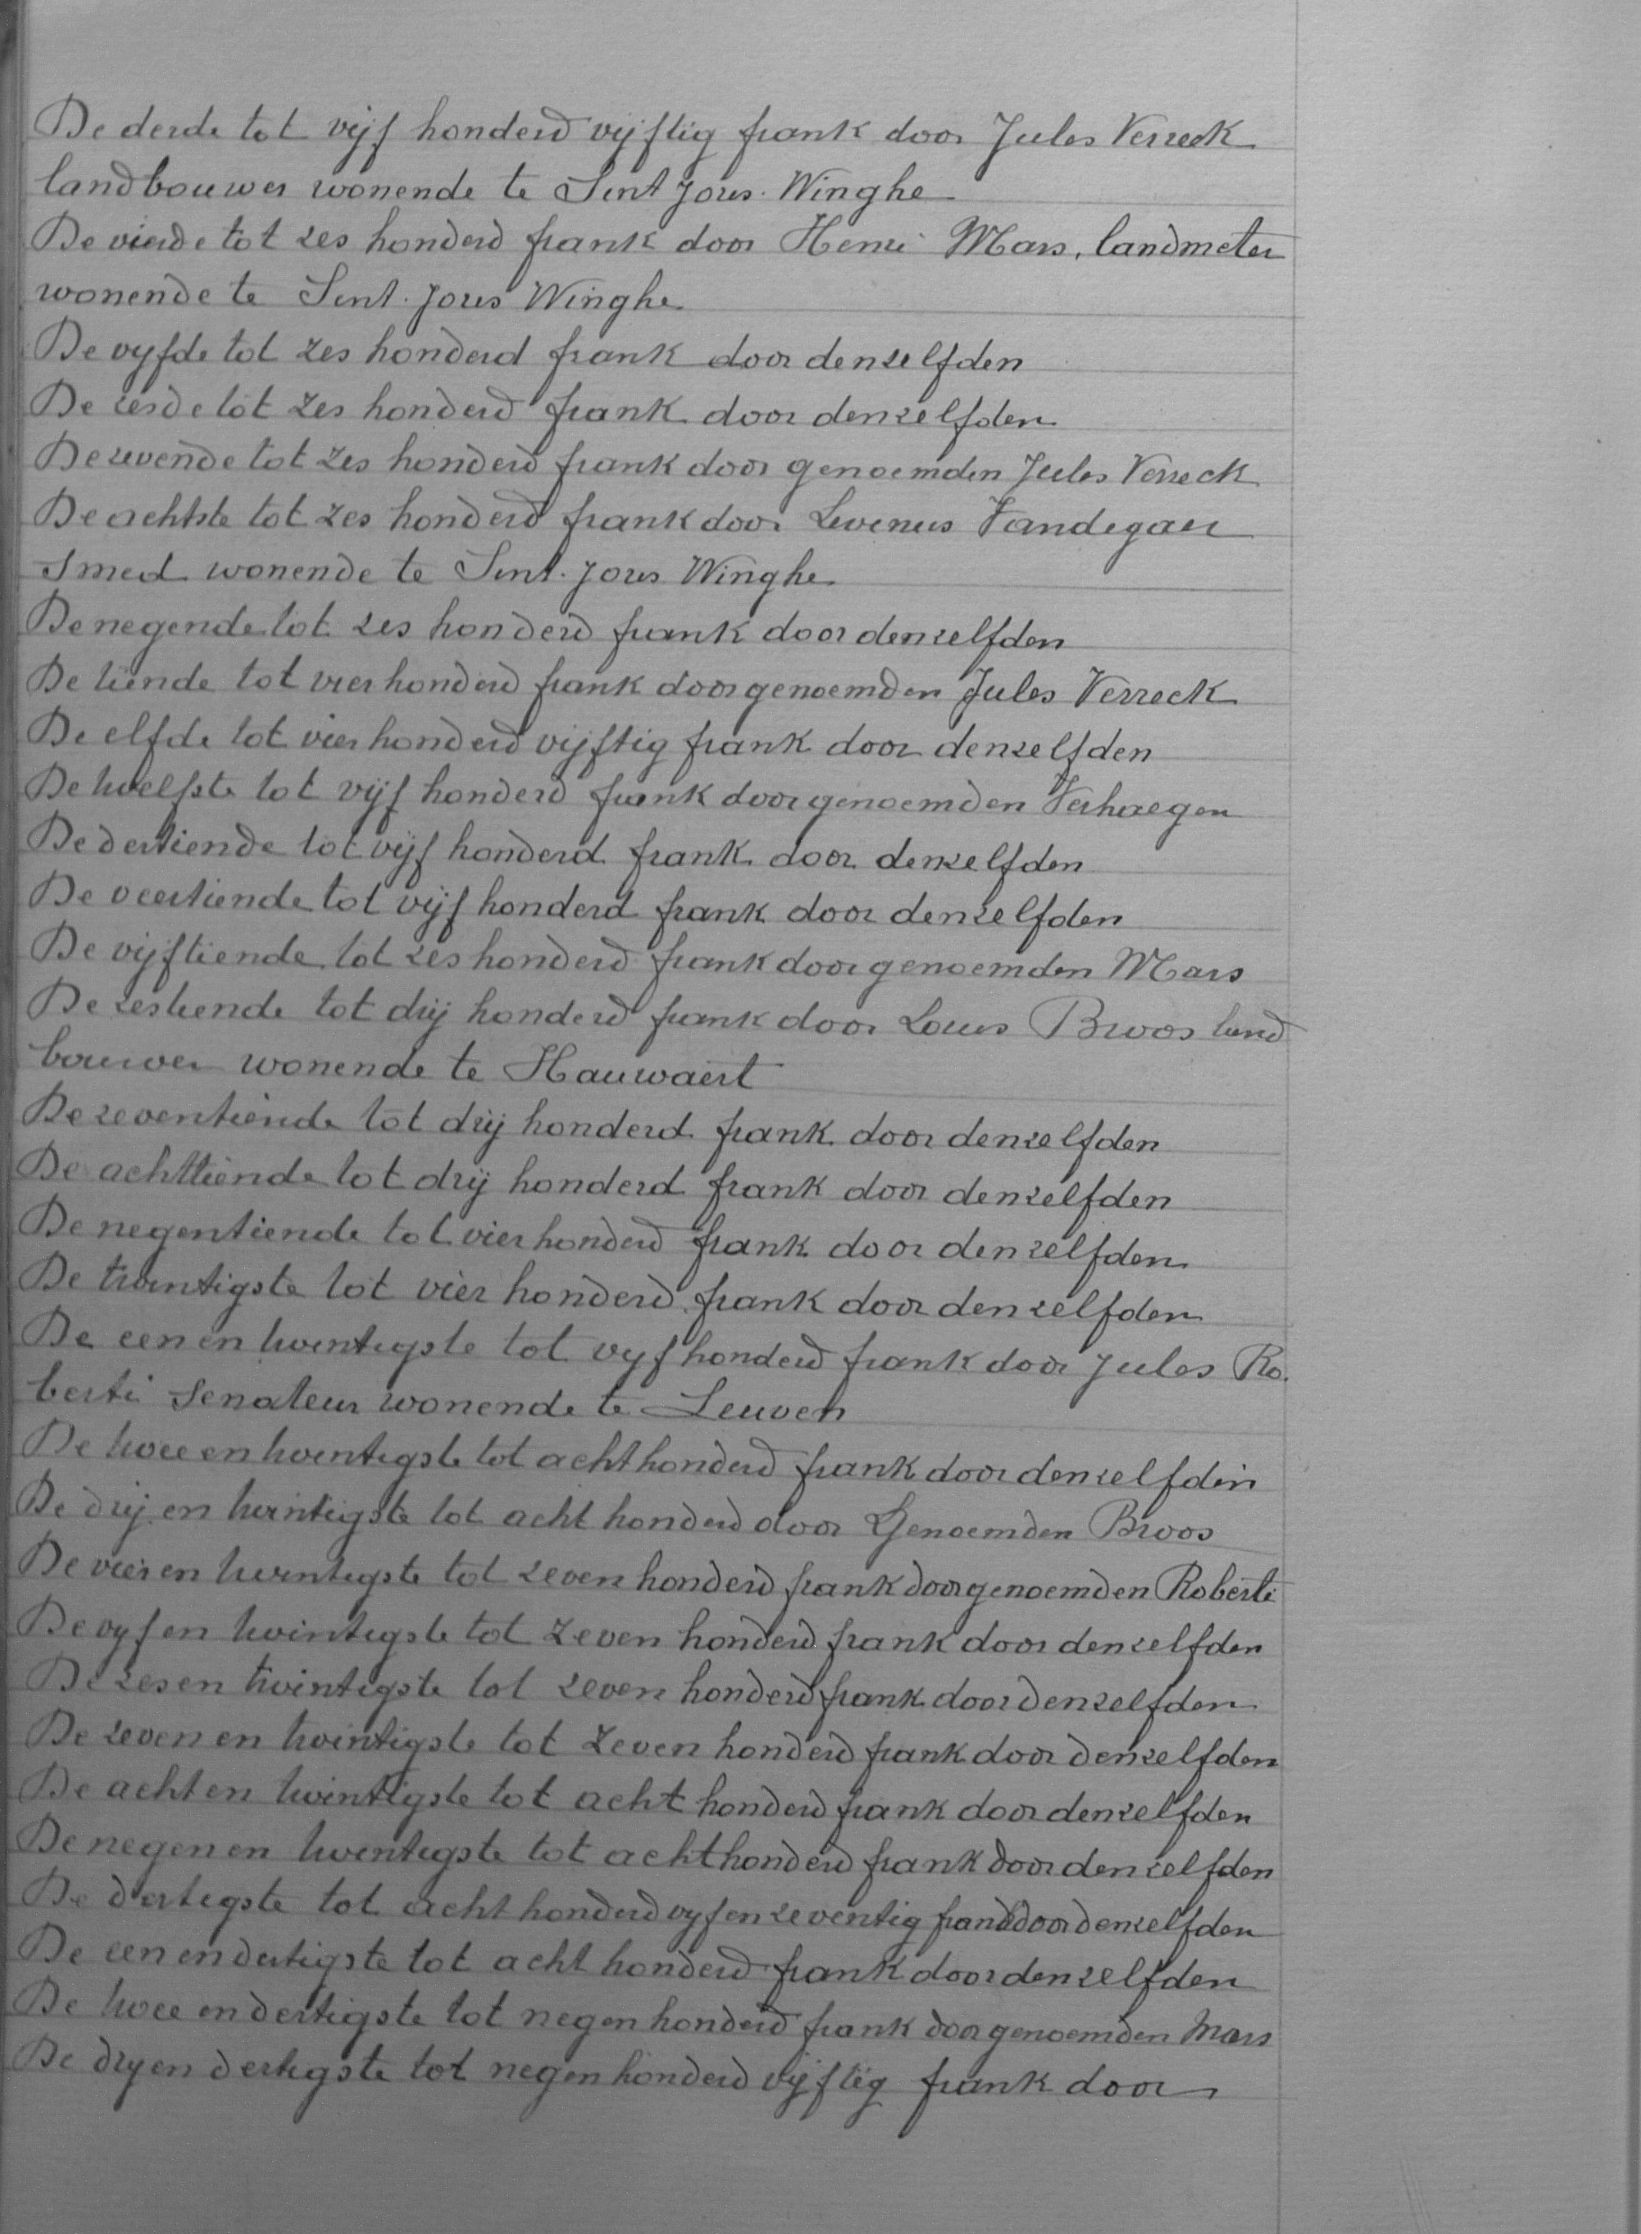 De derde tot vijf honderd vijftig frank door Jules Verreck
landbouwer wonende te Sint Joris Winghe
De vierde tot zes honderd frank door Henri Mars, landmeter
wonende te Sint Joris Winghe
De vyfde tot zes honderd frank door denzelfden
De zesde tot zes honderd frank door denzelfden
De zevende tot zes honderd frank door genoemden Jules Verreck
De achtste tot zes honderd frank door Livinus Vandegaer
smed wonende te Sint Joris Winghe
De negende tot zes honderd frank door denzelfden
De tiende tot vier honderd frank door genoemden Jules Verreck
De elfde tot vier honderd vijftig frank door denzelfden
De twelfste tot vijf honderd frank door genoemden Verhaegen
De dertiende tot vijf honderd frank door denzelfden
De veertiende tot vijf honderd frank door denzelfden
De vijftiende tot zes honderd frank door genoemden Mars
De zestiende tot drij honderd frank door Louis Broos land
bouwer wonende te Hauwaert
De zeventiende tot drij honderd frank door denzelfden
De achttiende tot drij honderd frank door denzelfden
De negentiende tot vier honderd frank door denzelfden
De twintigste tot vier honderd frank door denzelfden
De een en twintigste tot vyf honderd frank door Jules Ro.
berti Senateur wonende te Leuven
De twee en twintigste tot acht honderd frank door denzelfden
De drij en twintigste tot acht honderd door Genoemden Broos
De vier en twintigste tot zeven honderd frank door genoemden Roberti
De vyf en twintigste tot zeven honderd frank door denzelfden
De zes en twintigste tot zeven honderd frank door denzelfden
De zeven en twintigste tot zeven honderd frank door denzelfden
De acht en twintigste tot acht honderd frank door denzelfden
De negen en twintigste tot acht honderd frank door denzelfden
De dertigste tot acht honderd vyf en zeventig frand door denzelfden
De een en dertigste tot acht honderd frank door denzelfden
De twee en dertigste tot negen honderd frank door genoemden Mars
De dry en dertigste tot negen honderd vijftig frank door